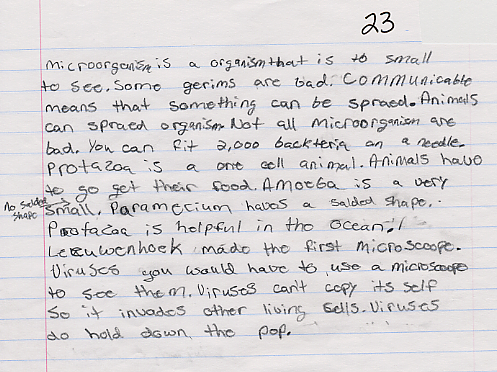 23
microorganism is a organism that is to small
to see. Some gerims are bad. Communicable
means that something can be spraed. Animals
can spraed organism. Not all microorganism are
bad. You can fit 2,000 backteria on a needle.
Protazoa is a one cell animal. Animals have
to go get their food. Amoeba is a very
No salded shape
small. Paramecium haves a salded shape.
Protazoa is helpful in the ocean.
Leeuwenhoek made the first microscope.
Viruses you would have to use a microscope
to see them. Viruses can't copy its self
so it invades other living cells. Viruses
do hold down the pop.